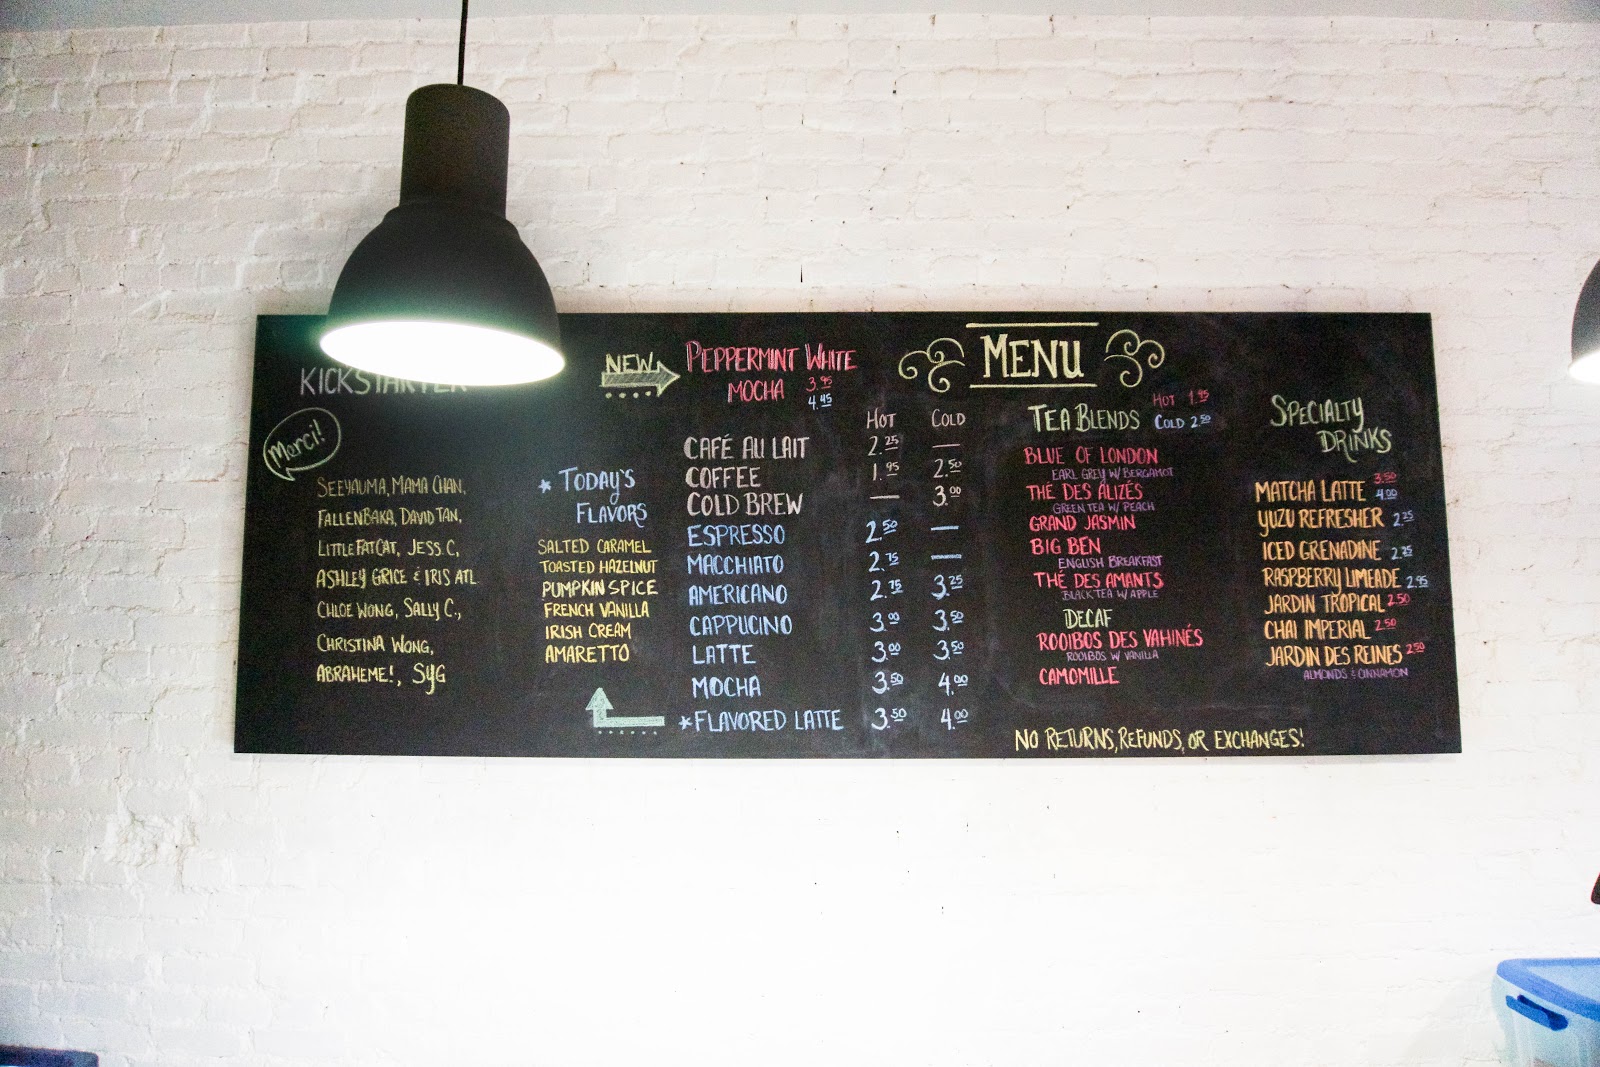 KICKSTARTER
Merci!
SEEYAUMA, MAMA CHAN,
FALLENBAKA, DAVID TAN,
LITTLEFATCAT, JESS C,
ASHLEY GRICE & IRIS ATL
CHLOE WONG, SALLY C.,
CHRISTINA WONG,
ABRAHEME!, SYG
* TODAY'S
FLAVORS
SALTED CARAMEL
TOASTED HAZELNUT
PUMPKIN SPICE
FRENCH VANILLA
IRISH CREAM
AMARETTO
NEW
PEPPERMINT WHITE
MOCHA 3.95
4.45
HOT COLD
CAFÉ AU LAIT 2.25 —
COFFEE 1.95 2.50
COLD BREW — 3.00
ESPRESSO 2.50 —
MACCHIATO 2.75 —
AMERICANO 2.75 3.25
CAPPUCINO 3.00 3.50
LATTE 3.00 3.50
MOCHA 3.50 4.00
*FLAVORED LATTE 3.50 4.00
MENU
TEA BLENDS HOT 1.95
COLD 2.50
BLUE OF LONDON
EARL GREY W/ BERGAMOT
THÉ DES ALIZÉS
GREEN TEA W/ PEACH
GRAND JASMIN
BIG BEN
ENGLISH BREAKFAST
THÉ DES AMANTS
BLACK TEA W/ APPLE
DECAF
ROOIBOS DES VAHINÉS
ROOIBOS W/ VANILLA
CAMOMILLE
SPECIALTY
DRINKS
MATCHA LATTE 3.50
4.00
YUZU REFRESHER 2.25
ICED GRENADINE 2.25
RASPBERRY LIMEADE 2.95
JARDIN TROPICAL 2.50
CHAI IMPERIAL 2.50
JARDIN DES REINES 2.50
ALMONDS & CINNAMON
NO RETURNS, REFUNDS, OR EXCHANGES!